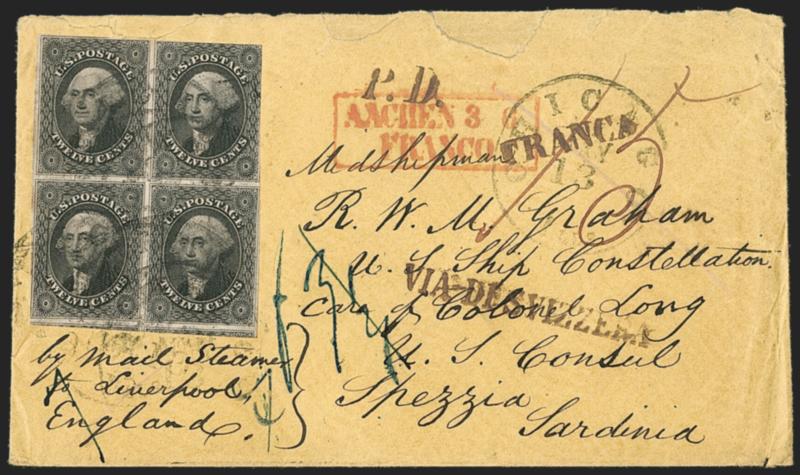 U.S. POSTAGE
TWELVE CENTS
U.S. POSTAGE
TWELVE CENTS
U.S. POSTAGE
TWELVE CENTS
U.S. POSTAGE
TWELVE CENTS
P.D.
AACHEN 3
FRANCO
FRANCA
13
Medshipman
R. W. M. Graham
U. S Ship Constellation
Care of Colonel Long
VIA-DI-SVIZZERA
U. S. Consul
Spezzia
Sardinia
by Mail Steamer
to Liverpool
England.